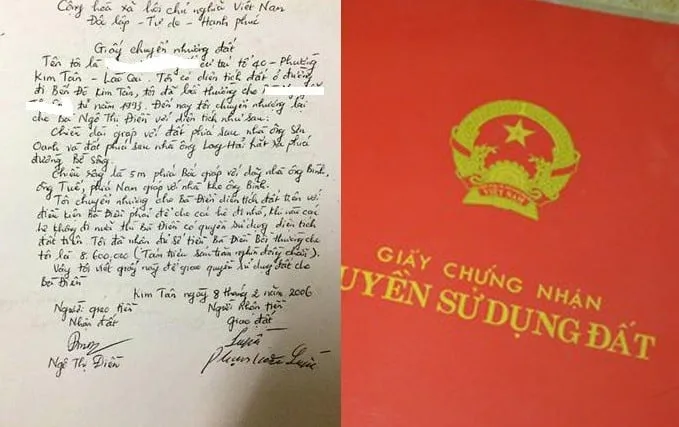 Cộng hòa xã hội chủ nghĩa Việt Nam
Độc lập - Tự do - Hạnh phúc
Giấy chuyển nhường đất
Tên tôi là cư trú tổ 40 - Phường
Kim Tân - Lào Cai. Tôi có diện tích đất ở đường
đi Bến Đá Kim Tân, tôi đã bồi thường cho
từ năm 1993. Đến nay tôi chuyển nhượng lại
cho Bà Ngô Thị Điền với diện tích như sau.
Chiều dài giáp với đất phía sau nhà ông Sơn
Oanh và đất phía sau nhà ông Long Hải hắt ra phía
đường Bờ Sông.
Chiều rộng là 5m phía Bắc giáp với dãy nhà ông Bình,
ông Tuế, phía Nam giáp với nhà kho ông Bình.
Tôi chuyển nhượng cho Bà Điền diện tích đất trên với
điều kiện Bà Điền phải để cho các hộ đi nhờ, khi nào các
hộ không đi nữa thì Bà Điền có quyền sử dụng diện tích
đất trên. Tôi đã nhận đủ số tiền Bà Điền Bồi thường cho
tôi là 8.600.000 (Tám triệu sáu trăm nghìn đồng chẵn).
Vậy tôi viết giấy này để giao quyền sử dụng đất cho
Bà Điền
Kim Tân ngày 8 tháng 2 năm 2006
Người giao tiền Người nhận tiền
Nhận đất Giao đất
Ngô Thị Điền
VIỆT NAM
GIẤY CHỨNG NHẬN
UYỀN SỬ DỤNG ĐẤT